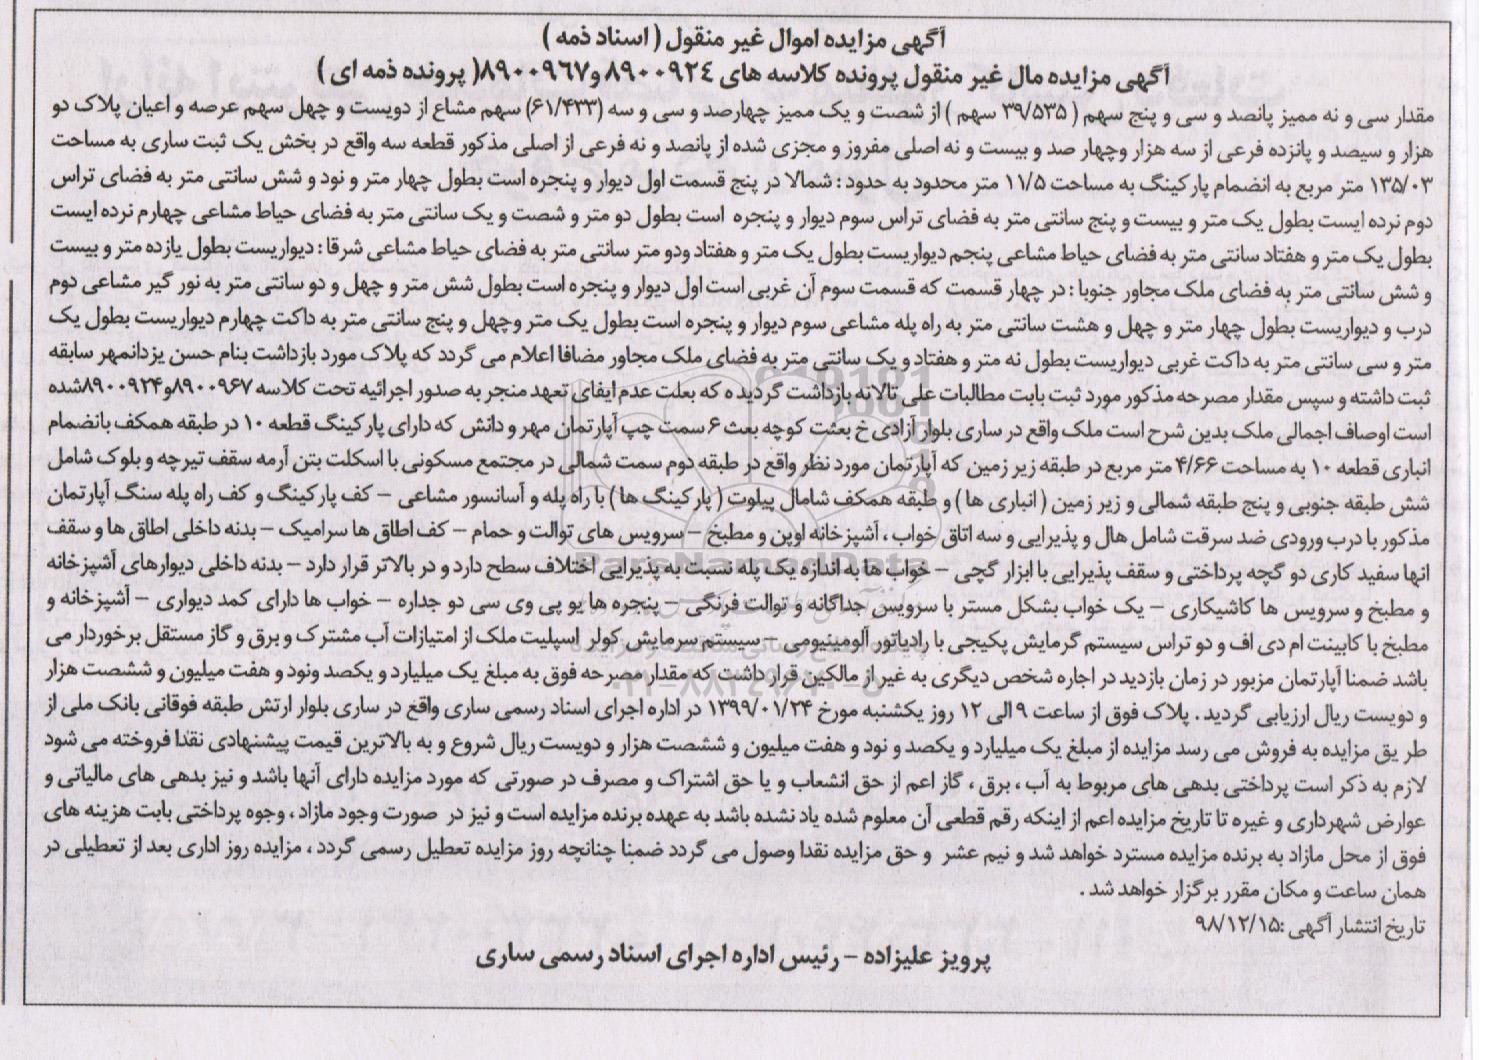 آگهی مزایده اموال غیر منقول ( اسناد ذمه )
آگهی مزایده مال غیر منقول پرونده کلاسه های ۸۹۰۰۹۲۴ و۸۹۰۰۹۶۷( پرونده ذمه ای )
مقدار سی و نه ممیز پانصد و سی و پنج سهم ( ۳۹/۵۳۵ سهم ) از شصت و یک ممیز چهارصد و سی و سه (۶۱/۴۳۳) سهم مشاع از دویست و چهل سهم عرصه و اعیان پلاک دو
هزار و سیصد و پانزده فرعی از سه هزار وچهار صد و بیست و نه اصلی مفروز و مجزی شده از پانصد و نه فرعی از اصلی مذکور قطعه سه واقع در بخش یک ثبت ساری به مساحت
۱۳۵/۰۳ متر مربع به انضمام پارکینگ به مساحت ۱۱/۵ متر محدود به حدود : شمالا در پنج قسمت اول دیوار و پنجره است بطول چهار متر و نود و شش سانتی متر به فضای تراس
دوم نرده ایست بطول یک متر و بیست و پنج سانتی متر به فضای تراس سوم دیوار و پنجره است بطول دو متر و شصت و یک سانتی متر به فضای حیاط مشاعی چهارم نرده ایست
بطول یک متر و هفتاد سانتی متر به فضای حیاط مشاعی پنجم دیواریست بطول یک متر و هفتاد ودو متر سانتی متر به فضای حیاط مشاعی شرقا : دیواریست بطول یازده متر و بیست
و شش سانتی متر به فضای ملک مجاور جنوبا : در چهار قسمت که قسمت سوم آن غربی است اول دیوار و پنجره است بطول شش متر و چهل و دو سانتی متر به نور گیر مشاعی دوم
درب و دیواریست بطول چهار متر و چهل و هشت سانتی متر به راه پله مشاعی سوم دیوار و پنجره است بطول یک متر وچهل و پنج سانتی متر به داکت چهارم دیواریست بطول یک
متر و سی سانتی متر به داکت غربی دیواریست بطول نه متر و هفتاد و یک سانتی متر به فضای ملک مجاور مضافا اعلام می گردد که پلاک مورد بازداشت بنام حسن یزدانمهر سابقه
ثبت داشته و سپس مقدار مصرحه مذکور مورد ثبت بابت مطالبات علی تالانه بازداشت گردید ه که بعلت عدم ایفای تعهد منجر به صدور اجرائیه تحت کلاسه ۸۹۰۰۹۶۷و۸۹۰۰۹۲۴شده
است اوصاف اجمالی ملک بدین شرح است ملک واقع در ساری بلوار آزادی خ بعثت کوچه بعث ۶ سمت چپ آپارتمان مهر و دانش که دارای پارکینگ قطعه ۱۰ در طبقه همکف بانضمام
انباری قطعه ۱۰ به مساحت ۴/۶۶ متر مربع در طبقه زیر زمین که آپارتمان مورد نظر واقع در طبقه دوم سمت شمالی در مجتمع مسکونی با اسکلت بتن آرمه سقف تیرچه و بلوک شامل
شش طبقه جنوبی و پنج طبقه شمالی و زیر زمین ( انباری ها ) و طبقه همکف شامال پیلوت ( پارکینگ ها ) با راه پله و آسانسور مشاعی – کف پارکینگ و کف راه پله سنگ آپارتمان
مذکور با درب ورودی ضد سرقت شامل هال و پذیرایی و سه اتاق خواب ، آشپزخانه اوپن و مطبخ – سرویس های توالت و حمام – کف اطاق ها سرامیک – بدنه داخلی اطاق ها و سقف
انها سفید کاری دو گچه پرداختی و سقف پذیرایی با ابزار گچی – خواب ها به اندازه یک پله نسبت به پذیرایی اختلاف سطح دارد و در بالاتر قرار دارد – بدنه داخلی دیوارهای آشپزخانه
و مطبخ و سرویس ها کاشیکاری – یک خواب بشکل مستر با سرویس جداگانه و توالت فرنگی – پنجره ها یو پی وی سی دو جداره – خواب ها دارای کمد دیواری – آشپزخانه و
مطبخ با کابینت ام دی اف و دو تراس سیستم گرمایش پکیجی با رادیاتور آلومینیومی – سیستم سرمایش کولر اسپلیت ملک از امتیازات آب مشترک و برق و گاز مستقل برخوردار می
باشد ضمنا آپارتمان مزبور در زمان بازدید در اجاره شخص دیگری به غیر از مالکین قرار داشت که مقدار مصرحه فوق به مبلغ یک میلیارد و یکصد ونود و هفت میلیون و ششصت هزار
و دویست ریال ارزیابی گردید . پلاک فوق از ساعت ۹ الی ۱۲ روز یکشنبه مورخ ۱۳۹۹/۰۱/۲۴ در اداره اجرای اسناد رسمی ساری واقع در ساری بلوار ارتش طبقه فوقانی بانک ملی از
طر یق مزایده به فروش می رسد مزایده از مبلغ یک میلیارد و یکصد و نود و هفت میلیون و ششصت هزار و دویست ریال شروع و به بالاترین قیمت پیشنهادی نقدا فروخته می شود
لازم به ذکر است پرداختی بدهی های مربوط به آب ، برق ، گاز اعم از حق انشعاب و یا حق اشتراک و مصرف در صورتی که مورد مزایده دارای آنها باشد و نیز بدهی های مالیاتی و
عوارض شهرداری و غیره تا تاریخ مزایده اعم از اینکه رقم قطعی آن معلوم شده یاد نشده باشد به عهده برنده مزایده است و نیز در صورت وجود مازاد ، وجوه پرداختی بابت هزینه های
فوق از محل مازاد به برنده مزایده مسترد خواهد شد و نیم عشر و حق مزایده نقدا وصول می گردد ضمنا چنانچه روز مزایده تعطیل رسمی گردد ، مزایده روز اداری بعد از تعطیلی در
همان ساعت و مکان مقرر برگزار خواهد شد .
تاریخ انتشار آگهی :۹۸/۱۲/۱۵
پرویز علیزاده – رئیس اداره اجرای اسناد رسمی ساری
ParsNamadData